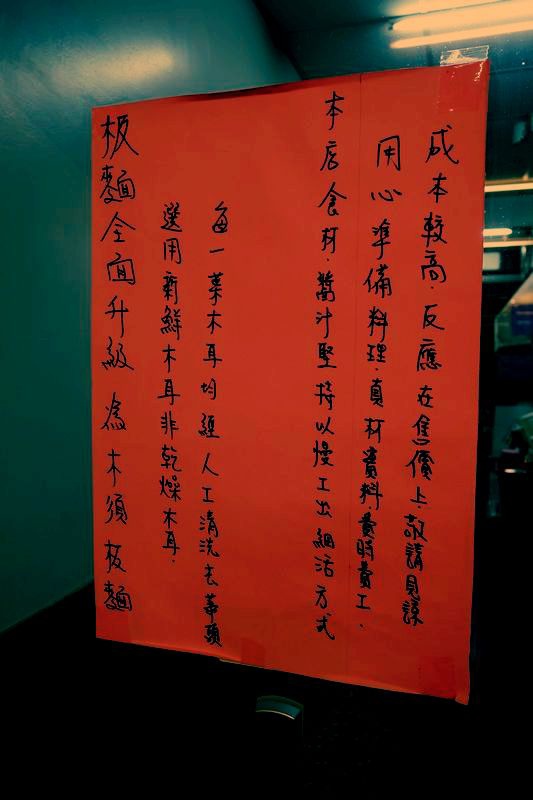 板麵全面升級為木須板麵
選用新鮮木耳非乾燥木耳.
每一菜木耳均經人工清洗去蒂頭
本店食材.醬汁堅持以慢工出細活方式
用心準備料理.真材實料.費時費工.
成本較高.反應在售價上.敬請見諒